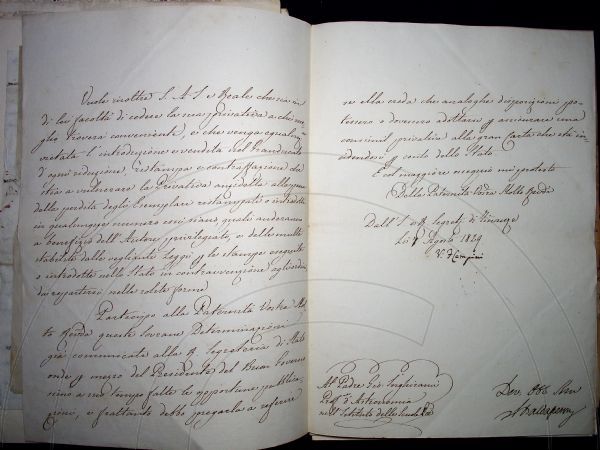 Vuole inoltre S. A. I. e Reale che sia in
di lei facoltà di cedere la sua privativa a chi me-
glio troverà conveniente, e che venga egualm.
vietata l'introduzione e vendita nel Granducato
d'ogni riduzione, ristampa e contraffazione che
stia a vulnerare la Privativa anzidetta alla pena
della perdita degli Esemplari ristampati o introdotti
in qualunque numero essi siano, quali anderanno
a benefizio dell'Autore privilegiato, e della multa
stabilita dalle veglianti Leggi per le stampe eseguite
o introdotte nello Stato in contravvenzione agli ordini
da repartirsi nelle solite forme
Partecipo alla Paternità Vostra Mol-
to Rev.da queste Sovrane Determinazioni
già comunicate alla R. Segreteria di Stato
onde per mezzo del Presidente del Buon Governo
sino a suo tempo fatte le opportune pubblica-
zioni, e frattanto debbo pregarla a referire
se ella creda che analoghe disposizioni po-
tessero o dovessero adottarsi per assicurare una
consimil privativa alla gran carta che sta in-
cidendosi per conto dello Stato.
E col maggiore ossequio mi protesto
Della Paternità Vostra Molto Rev.da
Dall' I. e R. Segret. di Finanze
Li Agosto 1829
Al Padre Gio: Inghirami
Prof. d'Astronomia
nell'Istituto delle Scuole Pie
Dev. Obb. Serv.